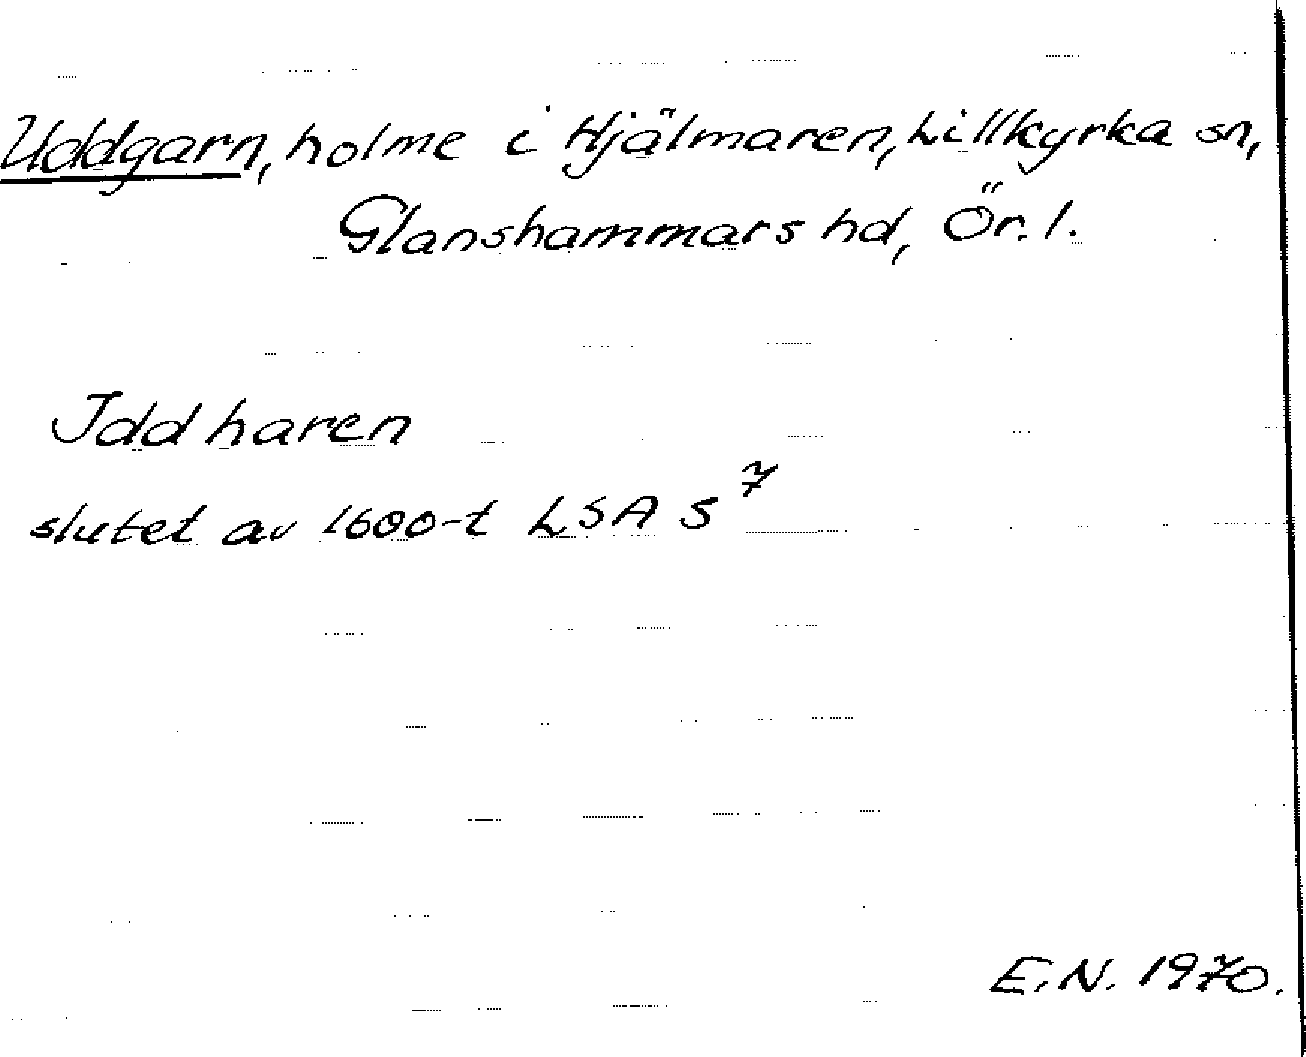 Uddgarn, holme i Hjälmaren, Lillkyrka sn,
Glanshammars hd, Ör. l.
Iddharen
slutet av 1600-t LSA S 7
E.N. 1970.